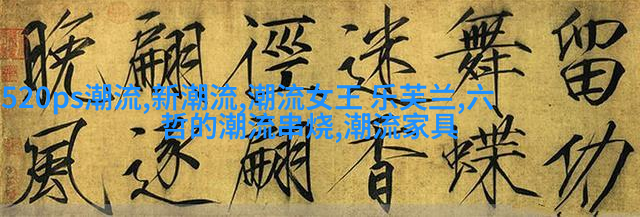 留功
舞蝶
迷香
徑翩
翩逐
晚風
520ps潮流,新潮流,潮流女王 乐芙兰,六
哲的潮流串烧,潮流家具